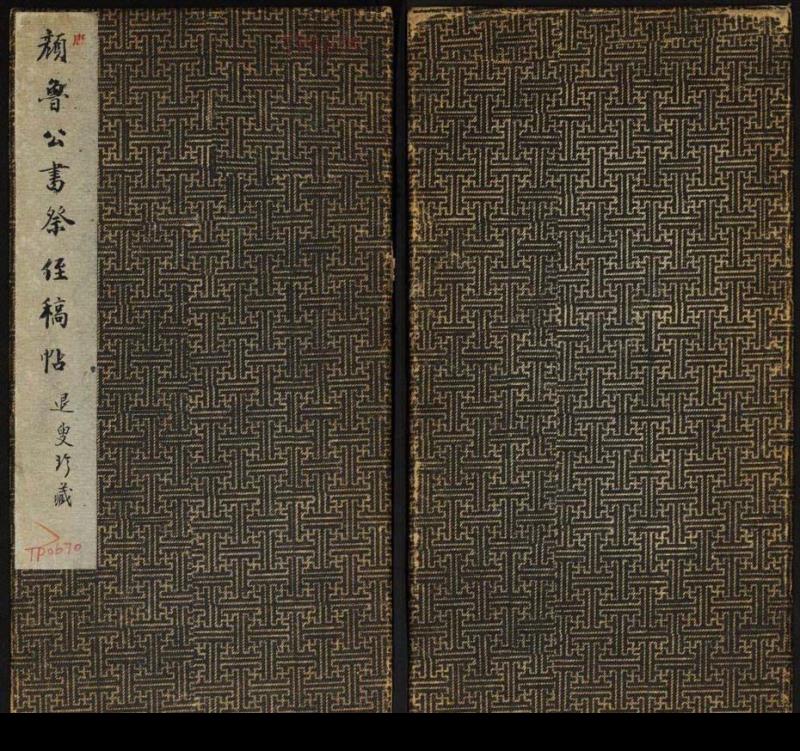 顔魯公書祭侄稿帖
退叟珍藏
TP0670